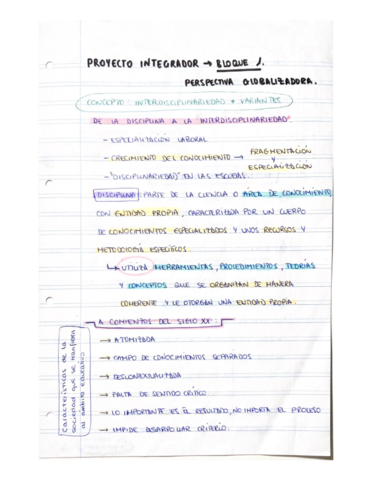 PROYECTO INTEGRADOR → BLOQUE 1.
PERSPECTIVA GLOBALIZADORA.
CONCEPTO: INTERDISCIPLINARIEDAD + VARIANTES
DE LA DISCIPLINA A LA INTERDISCIPLINARIEDAD
- ESPECIALIZACIÓN LABORAL
- CRECIMIENTO DEL CONOCIMIENTO → FRAGMENTACIÓN
Y
ESPECIALIZACIÓN
- "DISCIPLINARIEDAD" EN LAS ESCUELAS.
DISCIPLINA: PARTE DE LA CIENCIA O ÁREA DE CONOCIMIENTO
CON ENTIDAD PROPIA, CARACTERIZADA POR UN CUERPO
DE CONOCIMIENTOS ESPECIALIZADOS Y UNOS RECURSOS Y
METODOLOGÍA ESPECÍFICOS.
↳ UTILIZA HERRAMIENTAS, PROCEDIMIENTOS, TEORÍAS
Y CONCEPTOS QUE SE ORGANIZAN DE MANERA
COHERENTE Y LE OTORGAN UNA ENTIDAD PROPIA.
A COMIENZOS DEL SIGLO XX:
Características de la
sociedad que se transfiera
al ámbito educativo
→ ATOMIZADA
→ CAMPO DE CONOCIMIENTOS SEPARADOS
→ DESCONTEXTUALIZADA
→ FALTA DE SENTIDO CRÍTICO
→ LO IMPORTANTE ES EL RESULTADO, NO IMPORTA EL PROCESO
→ IMPIDE DESARROLLAR CRITERIO.